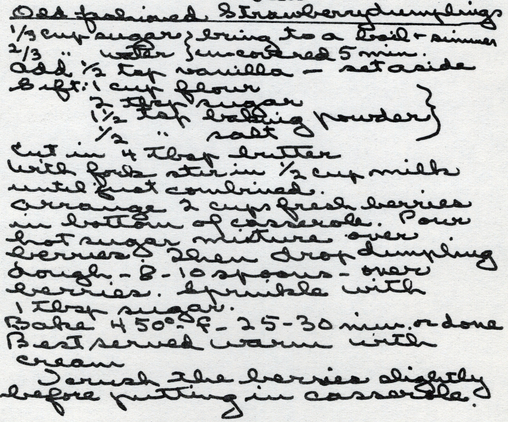 Old fashioned Strawberry dumplings
1/3 cup sugar } bring to a boil + simmer
2/3 " water } uncovered 5 min.
Add 1/2 tsp vanilla - set aside
Sift: 1 cup flour
2 tbsp sugar
1 1/2 tsp baking powder }
1/2 " salt
Cut in 4 tbsp butter
With fork stir in 1/2 cup milk
until just combined.
Arrange 2 cups fresh berries
in bottom of casserole. Pour
hot sugar mixture over
berries. Then drop dumpling
dough - 8-10 spoons - over
berries. Sprinkle with
1 tbsp sugar.
Bake 450° F - 25-30 min. or done
Best served warm with
cream
I crush the berries slightly
before putting in casserole.